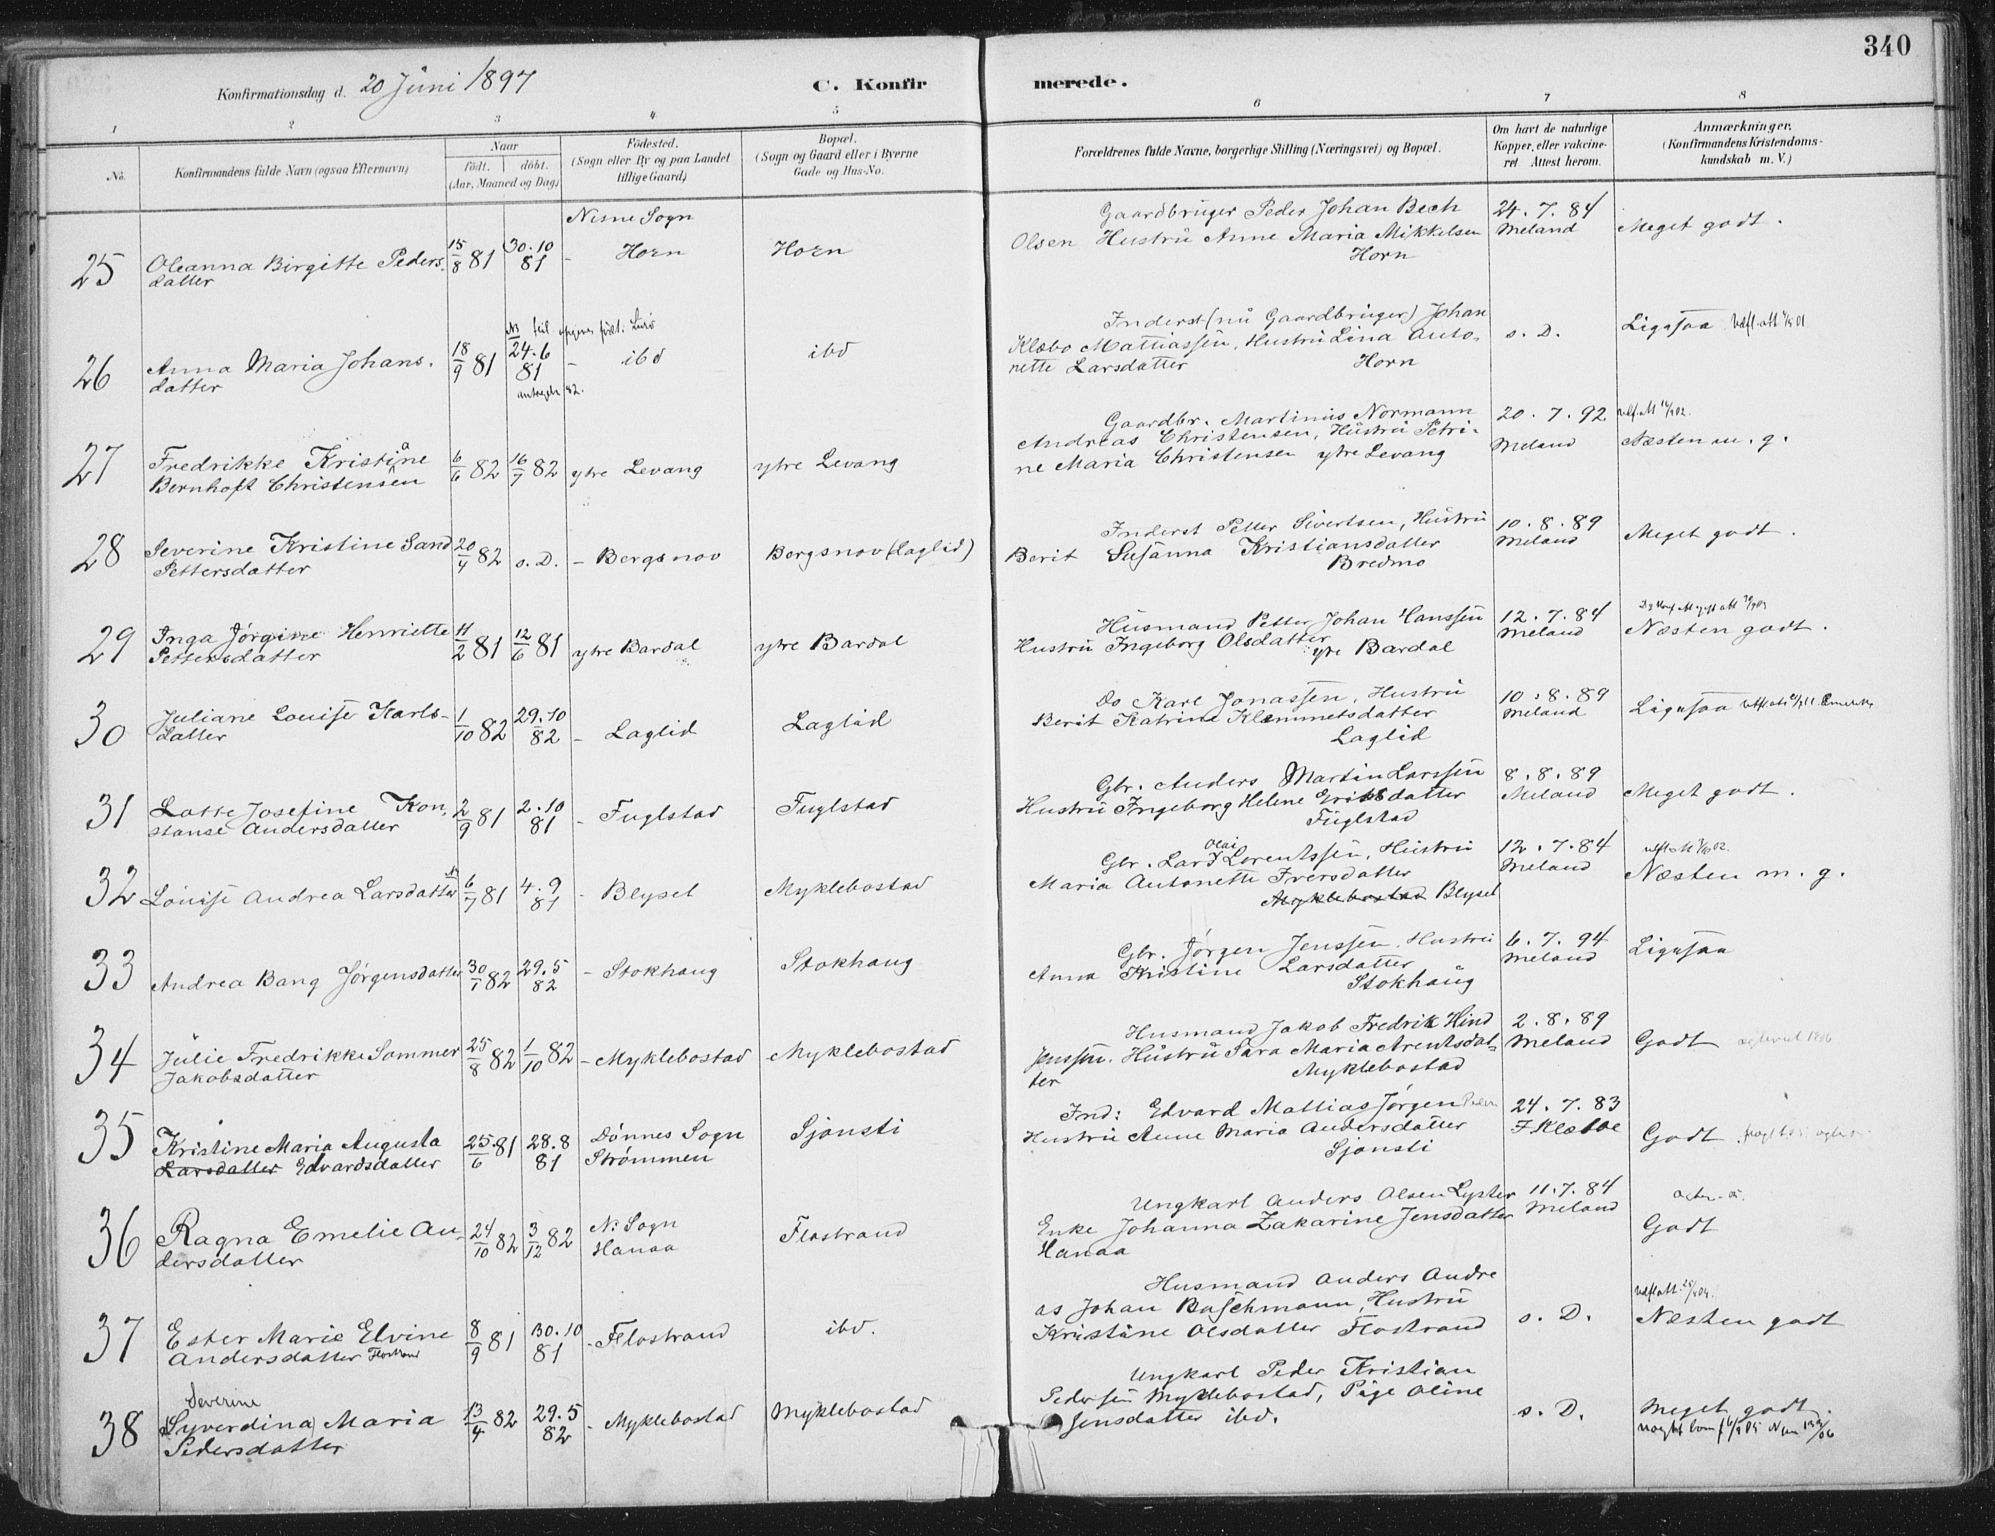 340
Konfirmationsdag d. 20 Juni 1897
C. Konfirmerede.
1 2 3 4 5 6 7 8
No.
Konfirmandens fulde Navn (ogsaa Efternavn)
Naar
Födt. döbt.
(Aar, Maaned og Dag)
Födested.
(Sogn eller By og paa Landet
tillige Gaard)
Bopæl.
(Sogn og Gaard eller i Byerne
Gade og Hus-No.
Forældrenes fulde Navne, borgerlige Stilling (Næringsvei) og Bopæl.
Om havt de naturlige
Kopper, eller vakcine-
ret. Attest herom.
Anmærkninger.
(Konfirmandens Kristendoms-
kundskab m. V.)
25
Oleanna Birgitte Peders-
datter
15/8 81
30.10
81
Nesne Sogn
- Horn
Horn
Gaardbruger Peder Johan Bech
Olsen Hustru Anne Maria Mikkelsen
Horn
24.7.84
Meland
Meget godt.
26
Anna Maria Johans-
datter
18/9 81
24.6
81
- ibd
ibd
Inderst (nu Gaardbruger) Johan
Klæbo Mattiassen, Hustru Lina Anto-
nette Larsdatter Horn
s. D.
Ligesaa
27
Fredrikke Kristine
Bernhoft Christensen
6/6 82
16/7 82
ytre Levang
ytre Levang
Gaardbr. Martinus Normann
Andreas Christensen, Hustru Petri-
ne Maria Christensen ytre Levang
20.7.92
Meland
Næsten m. g.
28
Severine Kristine Sand
Pettersdatter
20/4 82
s. D.
- Bergsnov
Bergsnov (Laglid)
Inderst Petter Sivertsen, Hustru
Berit Susanna Kristiansdatter
Bredmo
10.8.89
Meland
Meget godt.
29
Inga Jørgine Henriette
Pettersdatter
11/2 81
12/6 81
ytre Bardal
ytre Bardal
Husmand Petter Johan Hanssen
Hustru Ingeborg Olsdatter
ytre Bardal
12.7.84
Meland
Næsten godt.
30
Juliane Louise Karls-
datter
1/10 82
29.10
82
- Laglid
Laglid
Do Karl Jonassen, Hustru
Berit Katrine Klemmetsdatter
Laglid
10.8.89
Meland
Ligesaa
31
Lotte Josefine Kon-
stanse Andersdatter
2/9 81
2.10
81
- Fuglstad
Fuglstad
Gbr. Anders Martin Larssen
Hustru Ingeborg Helene Eriksdatter
Fuglstad
8.8.89
Meland
Meget godt.
32
Louise Andrea Larsdatter
6/7 81
4.9
81
- Blyset
Myklebostad
Gbr. Lars Olai Lorentssen, Hustru
Maria Antonette Iversdatter
Myklebostad Blyset
12.7.84
Meland
Næsten m. g.
33
Andrea Bang Jørgensdatter
30/1 82
29.5
82
- Stokhaug
Stokhaug
Gbr. Jørgen Jenssen, Hustru
Anna Kristine Larsdatter
Stokhaug
6.7.94
Meland
Ligesaa
34
Julie Fredrikke Sommer
Jakobsdatter
25/8 82
1/10 82
- Myklebostad
Myklebostad
Husmand Jakob Fredrik Hind
Jenssen. Hustru Sara Maria Arentsdat-
ter Myklebostad
2.8.89
Meland
Godt
35
Kristine Maria Augusta
Larsdatter Edvardsdatter
25/6 81
28.8
81
Dønnes Sogn
Strømmen
Sjonsti
Ind: Edvard Mattias Jørgen
Hustru Anne Maria Andersdatter
Sjonsti
24.7.83
F Klæboe
Godt
36
Ragna Emelie An-
dersdatter
24/10 82
3/12 82
N. Sogn
Hanaa
Flostrand
Ungkarl Anders Olsen Lyster
Enke Johanna Zakarine Jensdatter
Hanaa
11.7.84
Meland
Godt
37
Ester Marie Elvine
Andersdatter Flostrand
8/9 81
30.10
81
- Flostrand
ibd.
Husmand Anders Andre
as Johan Buschmann, Hustru
Kristine Olsdatter Flostrand
s. D.
Næsten godt
38
Severine
(Syverdina) Maria
Pedersdatter
13/4 82
29.5
82
- Myklebostad
Myklebostad
Ungkarl Peder Kristian
Pedersen Myklebostad, Pige Oline
Jensdatter ibd.
s. D.
Meget godt.